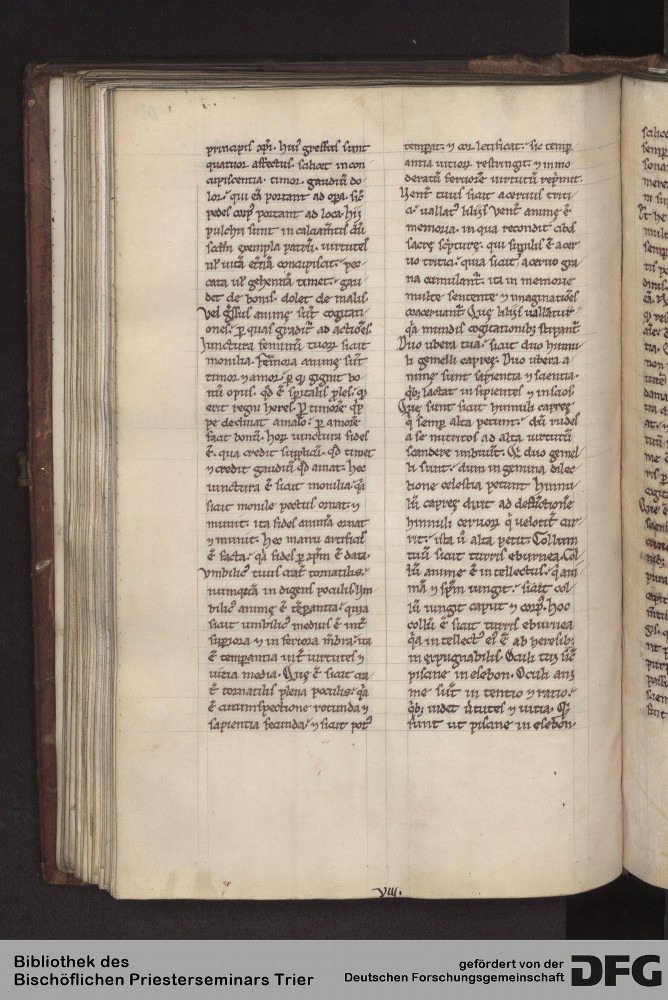 principis xpi. hui' gressus sunt
quatuor affectus. scilicet in con
cupiscentia. timor. gaudiū do
lor. qui eā portant ad opa. sic
pedes corp' portant ad loca. hii
pulchri sunt in calciamtis dū
exempla patrū. virtutes
vl' vitā etnā concupiscit. pec
cata vl' gehennā timet. gau
det de bonis. dolet de malis.
Vel gssus anime sūt cogitati
ones. p quas gradit ad actiōes.
Iunctura feminū tuor sicut
monilia. Femora anime sūt
timor 7 amor. p q gignit bo
nū opus. qd ē spitalis ples. q
erit regni heres. P timorē
declinat a malo. p amorē
facit bonū. hor iunctura fides
ē. qua credit suppliciū. qd timet
7 credit gaudiū qd amat. hec
iunctura ē sicut monilia. qa
sicut monile pectus ornat. 7
munit. ita fides animā ornat
7 munit. hec manu artificis
ē facta. qa fides p xpm ē data.
Vmbilic' tuus crat tornatilis.
numquā indigens poculis. Um
bilic' anime ē tēpantia. quia
sicut umbilic' medius ē int
supiora 7 inferiora mbra. ita
ē temperantia int virtutes 7
vitia media. Que ē sicut cra
t tornatilis plena poculis. qa
ē circumspectione rotunda 7
sapientia fecunda. 7 sicut pot'
temperat. 7 cor letificat. sic temp
antia vitior restringit. 7 inmo
deratū feruorē virtutū repmit.
Vent tuus sicut aceruus triti
ci. uallat' liliis. Vent anime ē
memoria. in qua recondit cib'
sacre scripture. qui similis ē acer
uo tritici. quia sicut aceruo gra
na cumulant. ita in memorie
multe sentente 7 imaginatiōes
coaceruant. Que liliis uallatur
qa mundis cogitationib; stipant.
Duo ubera tua. sicut duo hinnu
li gemelli capree. Duo ubera a
nime sunt sapientia 7 scientia.
qb; lactat insipientes 7 inscios.
Que sunt sicut hinnuli capree
q semp alta petunt. dū rudes
a se nutritos ad alta virtutū
scandere imbuunt. Et duo gemel
li sunt. dum in gemina dilec
tione celestia petunt. Hinnu
li capree dicit ad
hinnuli ceruor q velocit cur
rit. ista ū alta petit. Collum
tuū sicut turris eburnea. Col
lū anime ē intellectus. q ani
mā 7 spm iungit. sicut col
lū iungit caput 7 corp'. hoc
collū ē sicut turris eburnea
qa intellect' ei' ē ab heresib;
inexpugnabilis. Oculi tui sic
piscine in esebon. Oculi ani
me sūt intentio 7 ratio.
qb; uidet ututes 7 vitia. Qi
sunt ut piscine in esebon.
viii.
Bibliothek des
Bischöflichen Priesterseminars Trier
gefördert von der
Deutschen Forschungsgemeinschaft
DFG